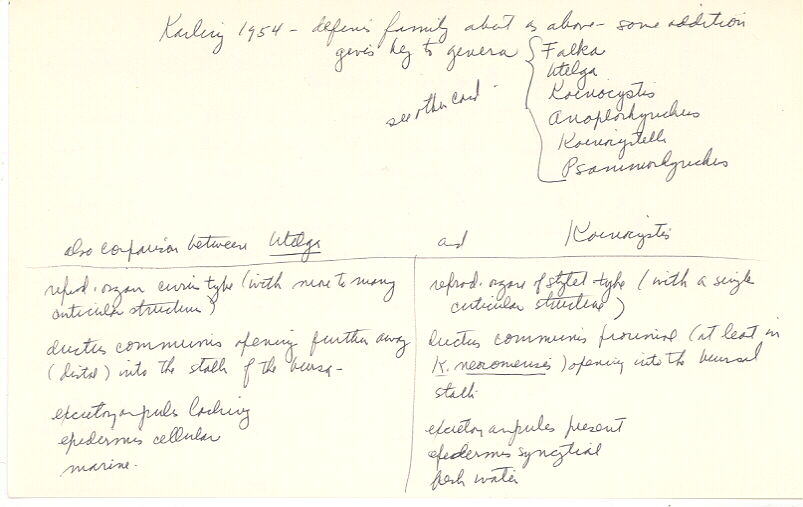 Karling 1954 - defines family about as above - some addition
gives key to genera { Falka
Utelga
Koinocystis
Anoplorhynchus
Koinocystella
Psammorhynchus
see other card -
also comparison between Utelga and Koinocystis
reprod. organ cirrus type (with more to many
cuticular structures)
ductus communis opening further away
(distal) into the stalk of the bursa -
excretory ampules lacking
epidermis cellular
marine.
reprod. organ of stylet type (with a single
cuticular structure)
ductus communis proximal (at least in
K. neocomensis) opening into the bursal
stalk.
excretory ampules present
epidermis syncytial
fresh water